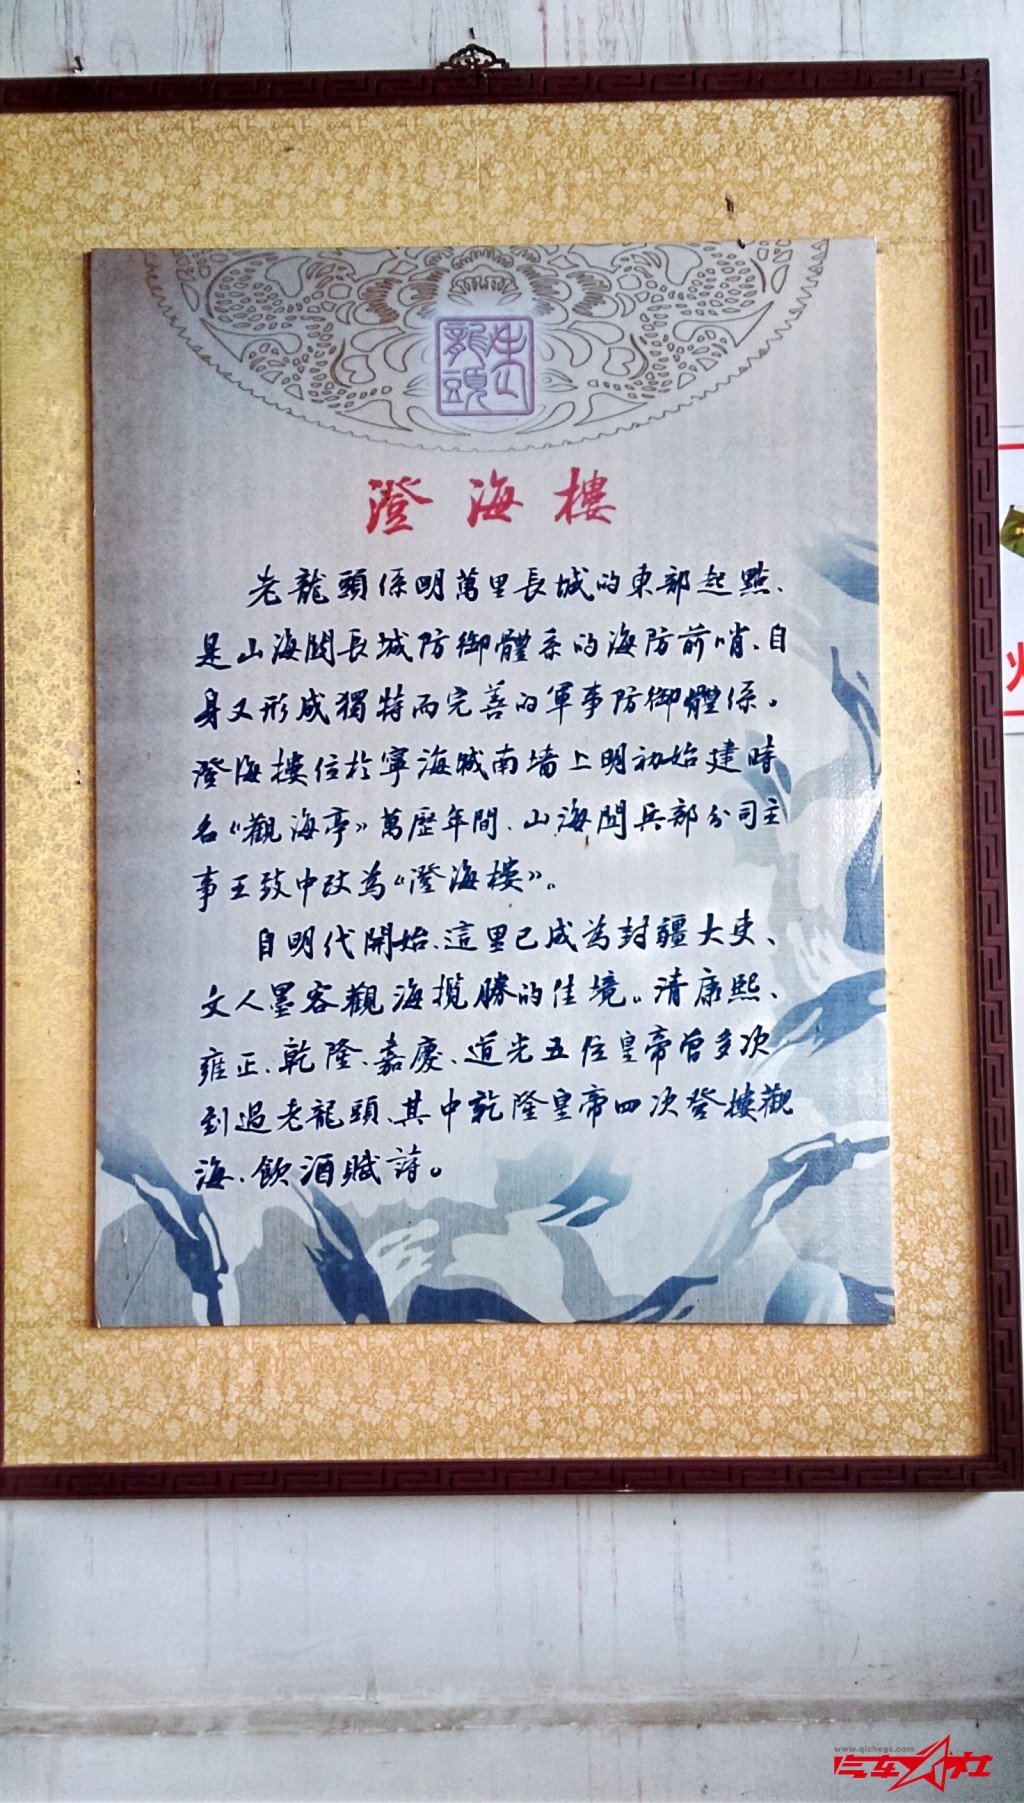 老龍頭
澄海樓
老龍頭係明萬里長城的東部起點、
是山海関長城防御體系的海防前哨、自
身又形成獨特而完善的軍事防御體係。
澄海樓位於寧海城南墻上明初始建時
名《觀海亭》萬歷年間、山海関兵部分司主
事王致中改為《澄海樓》。
自明代開始、這里已成為封疆大吏、
文人墨客觀海攬勝的佳境。清康熙、
雍正、乾隆、嘉慶、道光五位皇帝曾多次
到過老龍頭、其中乾隆皇帝四次登樓觀
海、飲酒賦詩。
www.qichegs.com